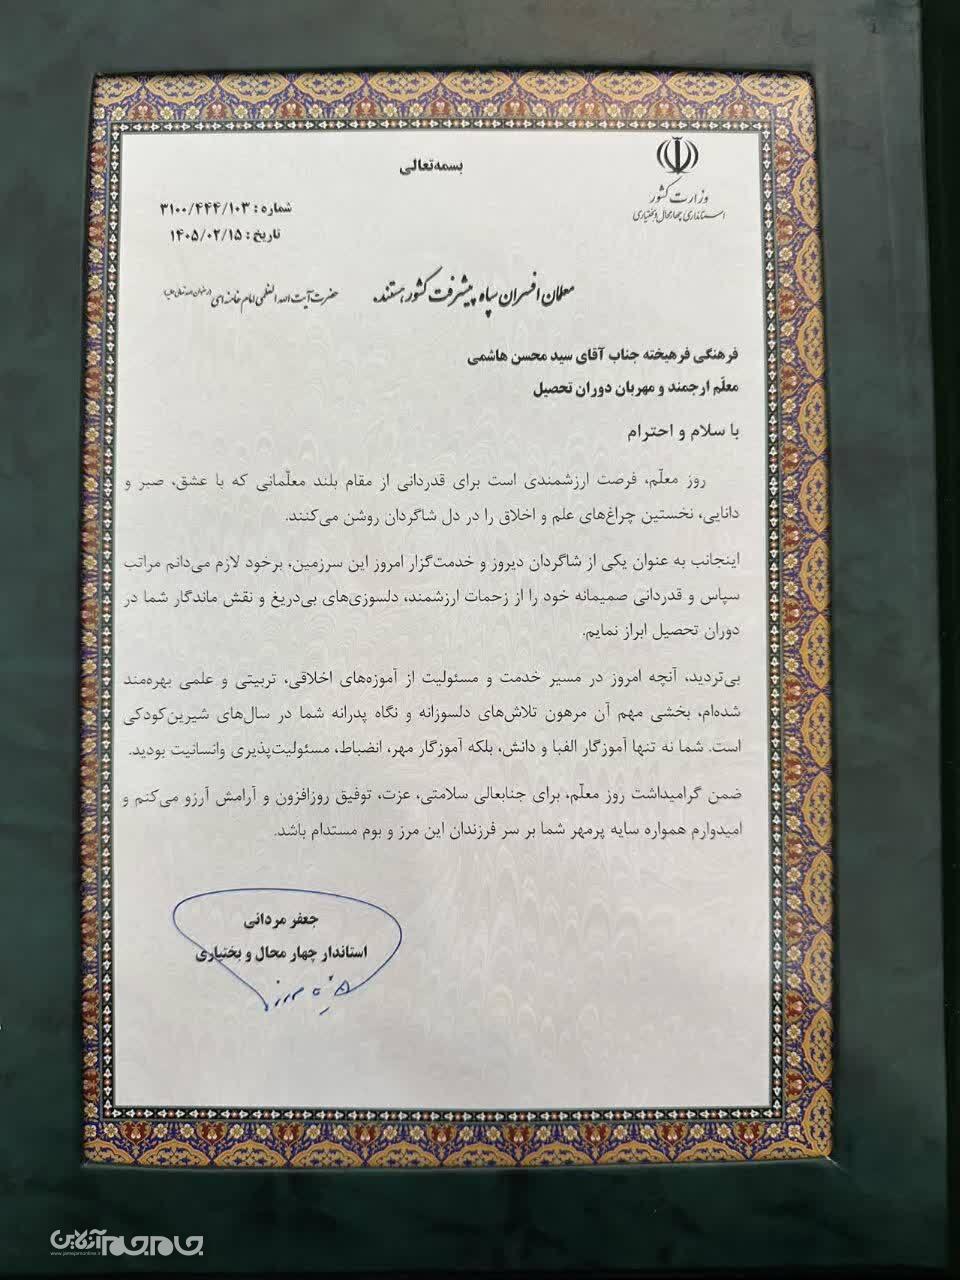 بسمه‌تعالی
وزارت کشور
استانداری چهارمحال و بختیاری
شماره : ۳۱۰۰/۴۴۴/۱۰۳
تاریخ : ۱۴۰۵/۰۲/۱۵
معلمان افسران سپاه پیشرفت کشور هستند. حضرت آیت الله العظمی امام خامنه ای (رضوان الله تعالی علیه)
فرهنگی فرهیخته جناب آقای سید محسن هاشمی
معلّم ارجمند و مهربان دوران تحصیل
با سلام و احترام
روز معلّم، فرصت ارزشمندی است برای قدردانی از مقام بلند معلّمانی که با عشق، صبر و
دانایی، نخستین چراغ‌های علم و اخلاق را در دل شاگردان روشن می‌کنند.
اینجانب به عنوان یکی از شاگردان دیروز و خدمت‌گزار امروز این سرزمین، برخود لازم می‌دانم مراتب
سپاس و قدردانی صمیمانه خود را از زحمات ارزشمند، دلسوزی‌های بی‌دریغ و نقش ماندگار شما در
دوران تحصیل ابراز نمایم.
بی‌تردید، آنچه امروز در مسیر خدمت و مسئولیت از آموزه‌های اخلاقی، تربیتی و علمی بهره‌مند
شده‌ام، بخشی مهم آن مرهون تلاش‌های دلسوزانه و نگاه پدرانه شما در سال‌های شیرین‌کودکی
است. شما نه تنها آموزگار الفبا و دانش، بلکه آموزگار مهر، انضباط، مسئولیت‌پذیری وانسانیت بودید.
ضمن گرامیداشت روز معلّم، برای جنابعالی سلامتی، عزت، توفیق روزافزون و آرامش آرزو می‌کنم و
امیدوارم همواره سایه پرمهر شما بر سر فرزندان این مرز و بوم مستدام باشد.
جعفر مردانی
استاندار چهار محال و بختیاری
جام‌جم آنلاین
www.jamejamonline.ir